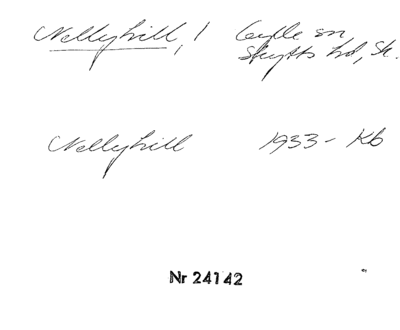 Nellyhill, 1 Gylle sn,
Skytts hd, Sk.
Nellyhill 1933 - Kb
Nr 24142